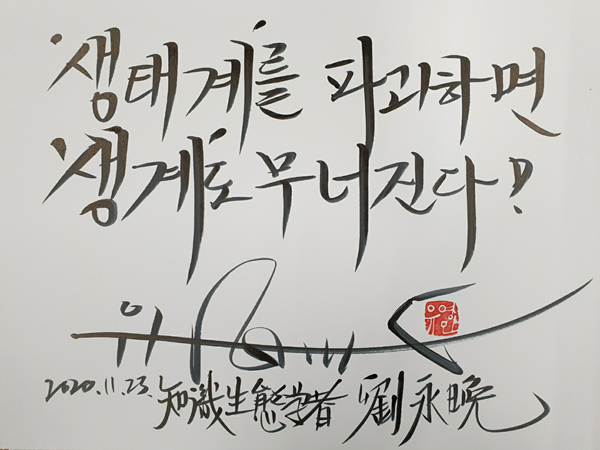 생태계를 파괴하면
생계도 무너진다!
2020.11.23. 知識生態学者 劉永晩